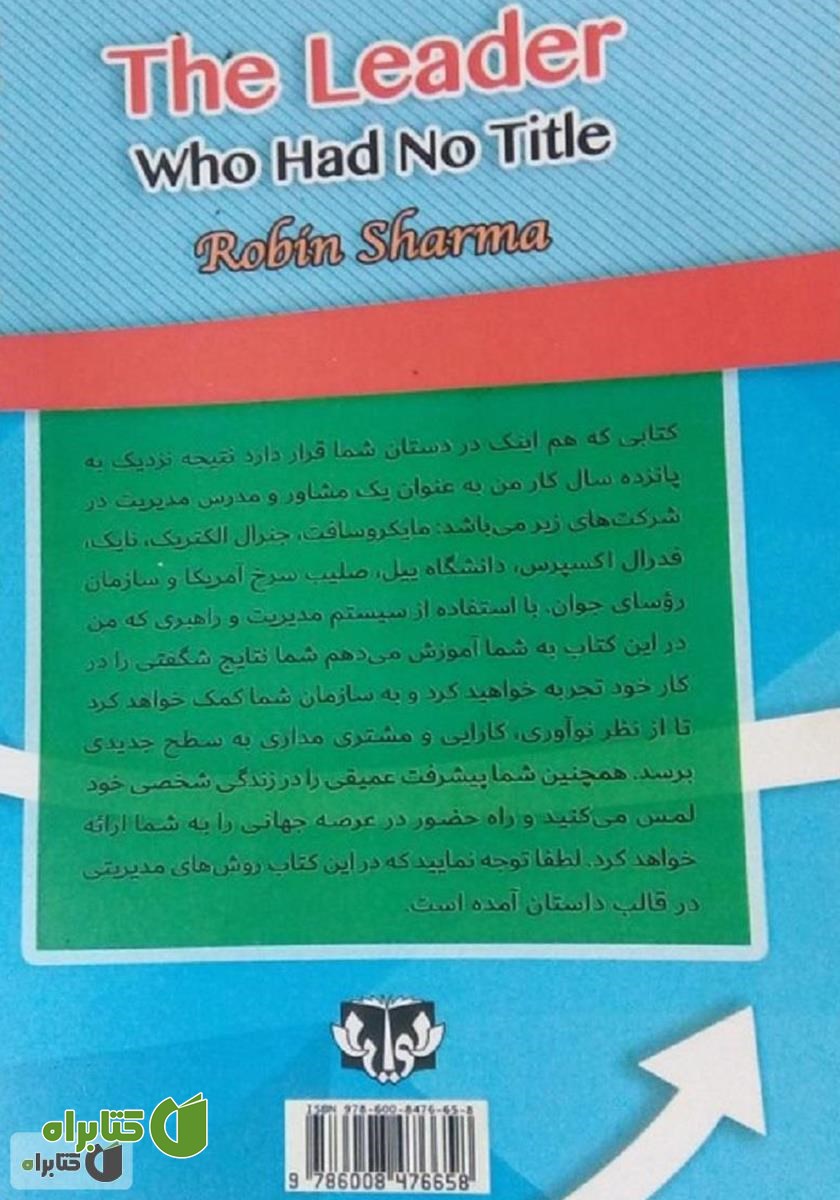 The Leader
Who Had No Title
Robin Sharma
کتابی که هم اینک در دستان شما قرار دارد نتیجه نزدیک به
پانزده سال کار من به عنوان یک مشاور و مدرس مدیریت در
شرکت‌های زیر می‌باشد: مایکروسافت، جنرال الکتریک، نایک،
فدرال اکسپرس، دانشگاه ییل، صلیب سرخ آمریکا و سازمان
رؤسای جوان. با استفاده از سیستم مدیریت و راهبری که من
در این کتاب به شما آموزش می‌دهم شما نتایج شگفتی را در
کار خود تجربه خواهید کرد و به سازمان شما کمک خواهد کرد
تا از نظر نوآوری، کارایی و مشتری مداری به سطح جدیدی
برسد. همچنین شما پیشرفت عمیقی را در زندگی شخصی خود
لمس می‌کنید و راه حضور در عرصه جهانی را به شما ارائه
خواهد کرد. لطفا توجه نمایید که در این کتاب روش‌های مدیریتی
در قالب داستان آمده است.
ISBN 978-600-8476-65-8
9 786008 476658
کتابراه
کتابراه